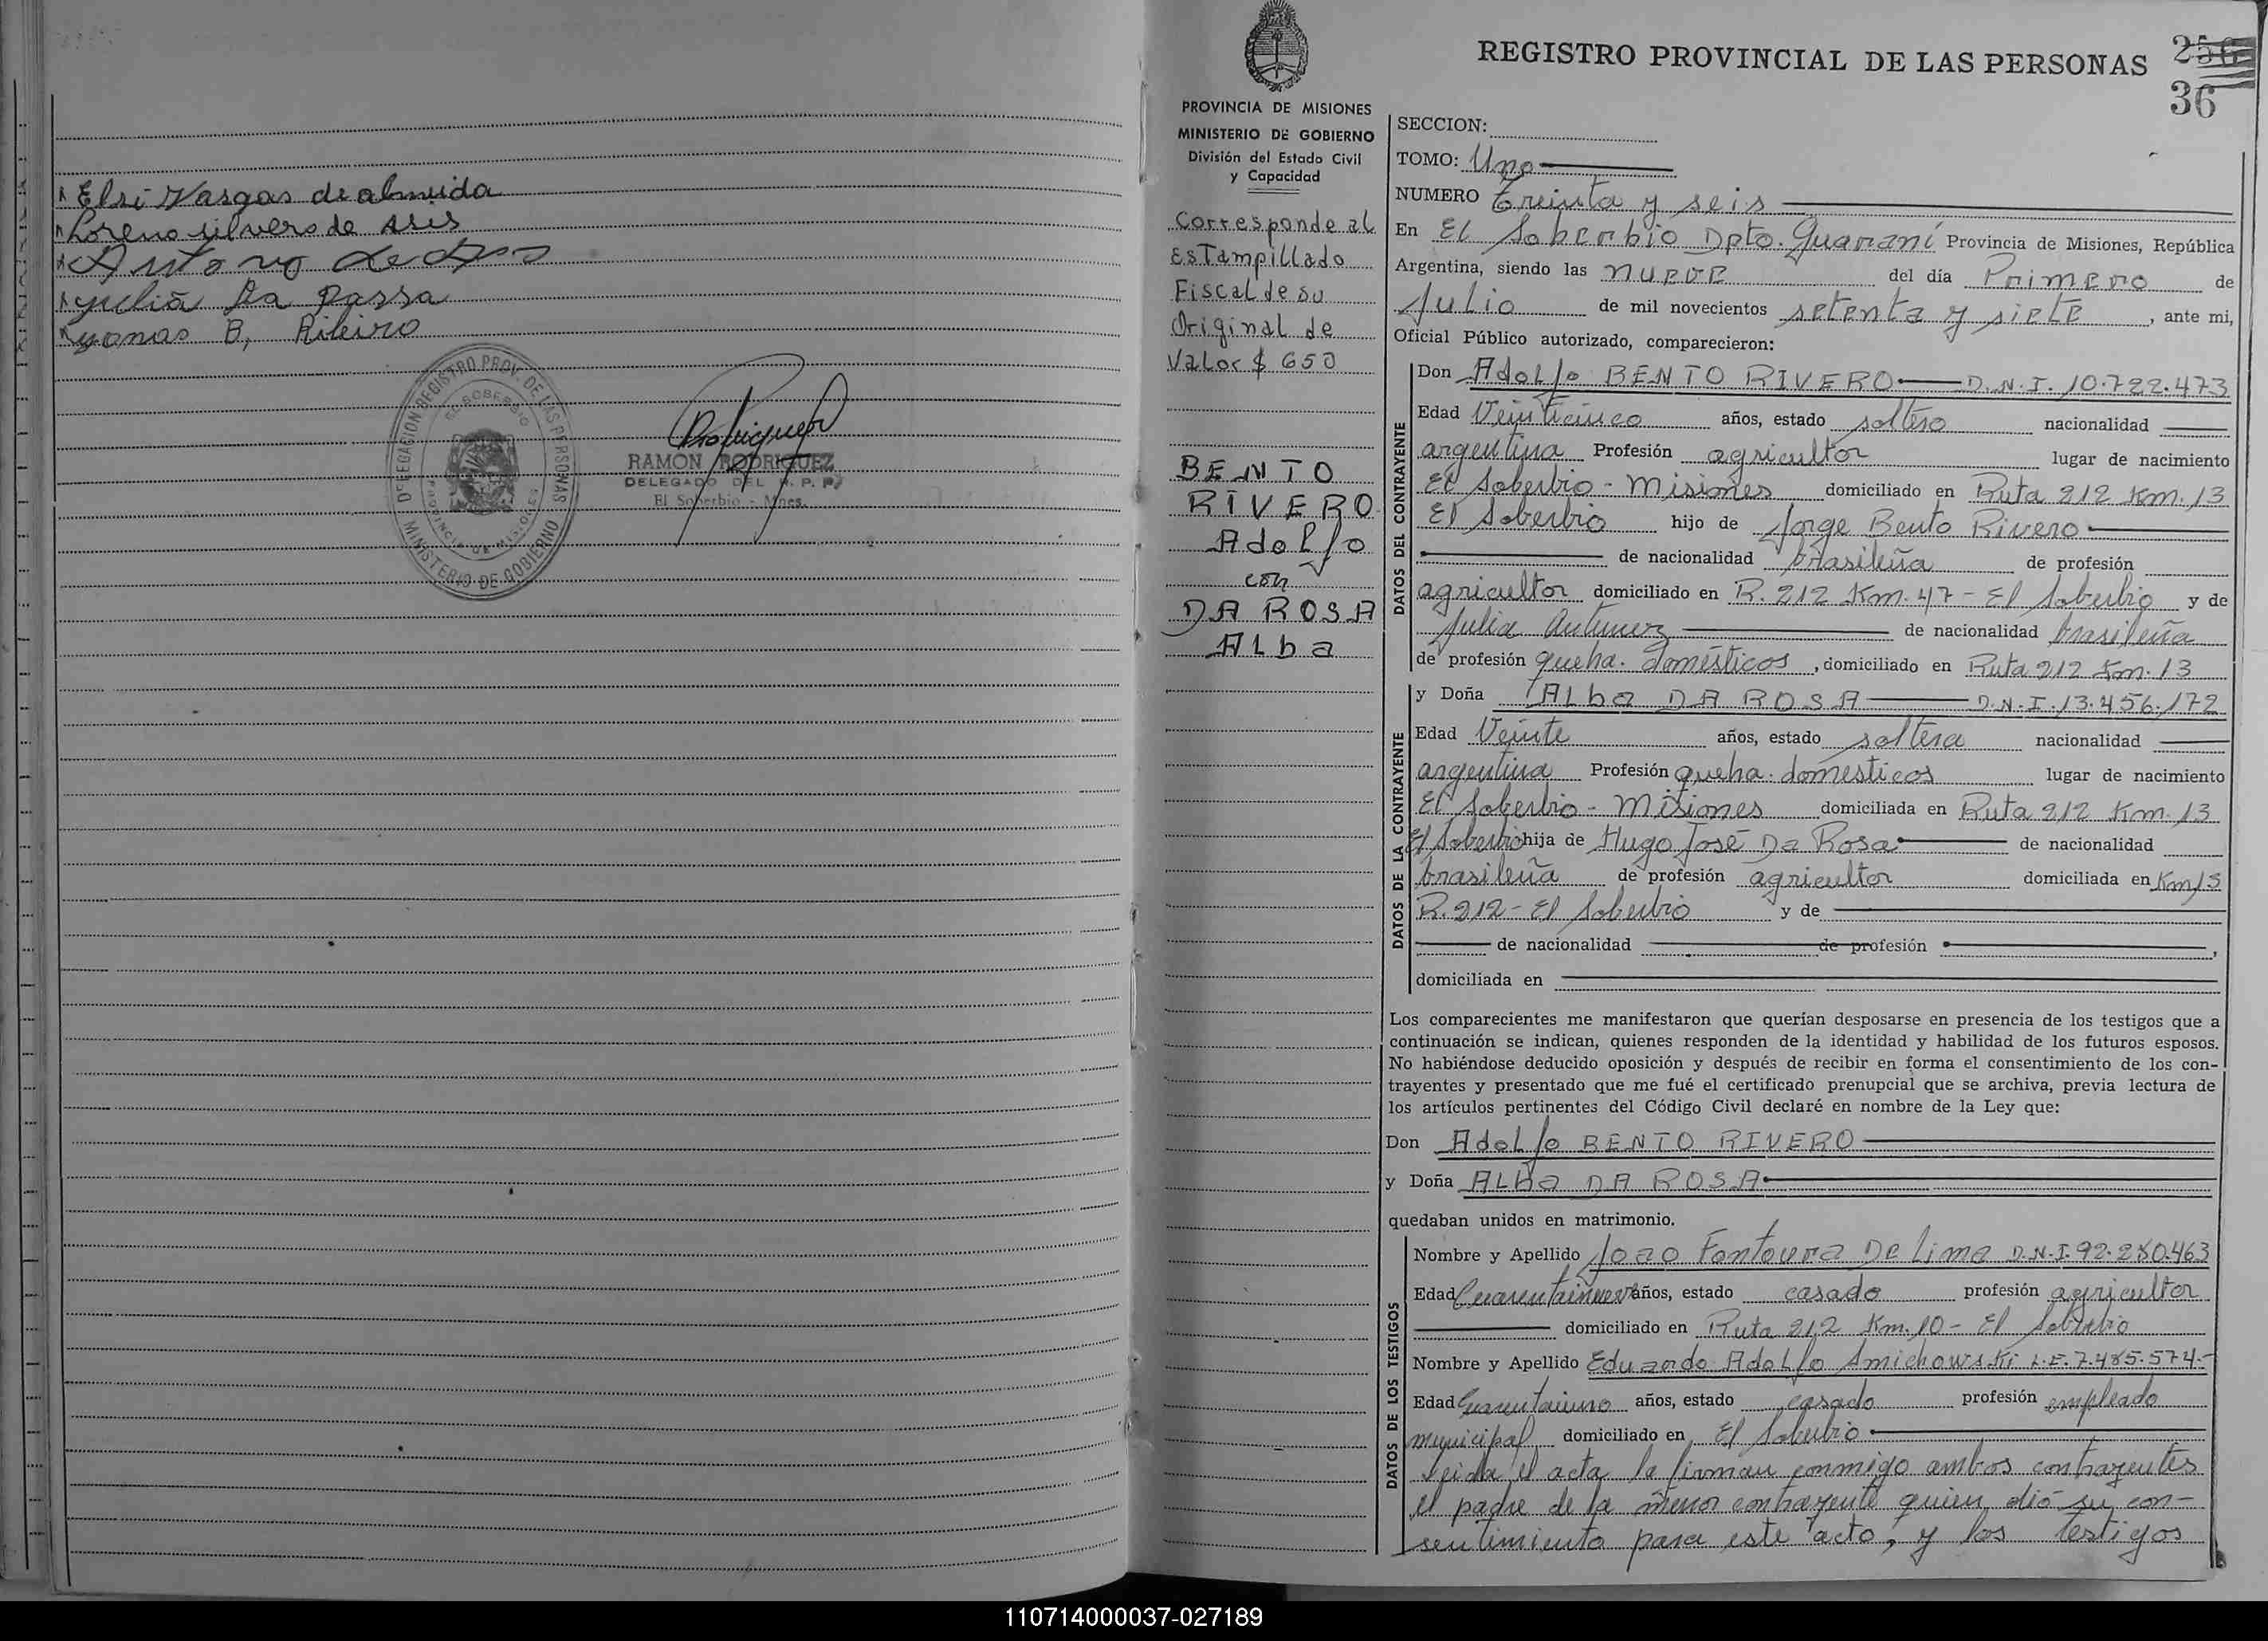 Elsi Vargas de almeida
Loreno silvero de Asis
Antonio de
yulia Da Rassa
yonas B, Ribeiro
DELEGACION REGISTRO PROV. DE LAS PERSONAS
EL SOBERBIO
PROVINCIA DE MISIONES
MINISTERIO DE GOBIERNO
RAMON RODRIGUEZ
DELEGADO DEL R. P. P.
El Soberbio - Mnes.
PROVINCIA DE MISIONES
MINISTERIO DE GOBIERNO
División del Estado Civil
y Capacidad
Corresponde al
Estampillado
Fiscal de su
Original de
Valor $ 650
BENTO
RIVERO
Adolfo
con
DA ROSA
Alba
REGISTRO PROVINCIAL DE LAS PERSONAS
36
SECCION:
TOMO: Uno
NUMERO Treinta y seis
En El Soberbio Dpto. Guaraní Provincia de Misiones, República
Argentina, siendo las nueve del día Primero de
Julio de mil novecientos setenta y siete, ante mi,
Oficial Público autorizado, comparecieron:
DATOS DEL CONTRAYENTE
Don Adolfo BENTO RIVERO D.N.I. 10.722.473
Edad Veinticinco años, estado soltero nacionalidad
argentina Profesión agricultor lugar de nacimiento
El Soberbio - Misiones domiciliado en Ruta 212 Km. 13
El Soberbio hijo de Jorge Bento Rivero
de nacionalidad brasileña de profesión
agricultor domiciliado en R. 212 Km. 47 - El Soberbio y de
Julia Antunez de nacionalidad brasileña
de profesión queha. domésticos, domiciliado en Ruta 212 Km. 13
DATOS DE LA CONTRAYENTE
y Doña Alba DA ROSA D.N.I. 13.456.172
Edad Veinte años, estado soltera nacionalidad
argentina Profesión queha. domesticos lugar de nacimiento
El Soberbio - Misiones domiciliada en Ruta 212 Km. 13
El Soberbio hija de Hugo José Da Rosa de nacionalidad
brasileña de profesión agricultor domiciliada en Km13
R. 212 - El Soberbio y de
de nacionalidad de profesión ,
domiciliada en
Los comparecientes me manifestaron que querían desposarse en presencia de los testigos que a
continuación se indican, quienes responden de la identidad y habilidad de los futuros esposos.
No habiéndose deducido oposición y después de recibir en forma el consentimiento de los con-
trayentes y presentado que me fué el certificado prenupcial que se archiva, previa lectura de
los artículos pertinentes del Código Civil declaré en nombre de la Ley que:
Don Adolfo BENTO RIVERO
y Doña ALba DA ROSA
quedaban unidos en matrimonio.
DATOS DE LOS TESTIGOS
Nombre y Apellido Joao Fontoura De Lima D.N.I. 92.280.463
Edad Cuarentainueve años, estado casado profesión agricultor
domiciliado en Ruta 212 Km. 10 - El Soberbio
Nombre y Apellido Eduardo Adolfo Smichowski L.E. 7.485.574.-
Edad Cuarentaiuno años, estado casado profesión empleado
municipal domiciliado en El Soberbio
Leida el acta la firman conmigo ambos contrayentes
el padre de la menor contrayente quien dió su con-
sentimiento para este acto, y los testigos
110714000037-027189